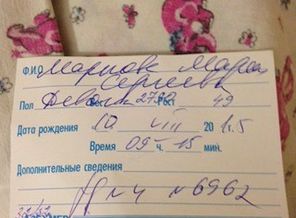 Ф.И.О. Маркова Мария
Сергеевна
Пол Девочка 2790 Рост 49
Дата рождения 10 VIII 2015
Время 09 ч. 15 мин.
Дополнительные сведения
№ 4 № 6962